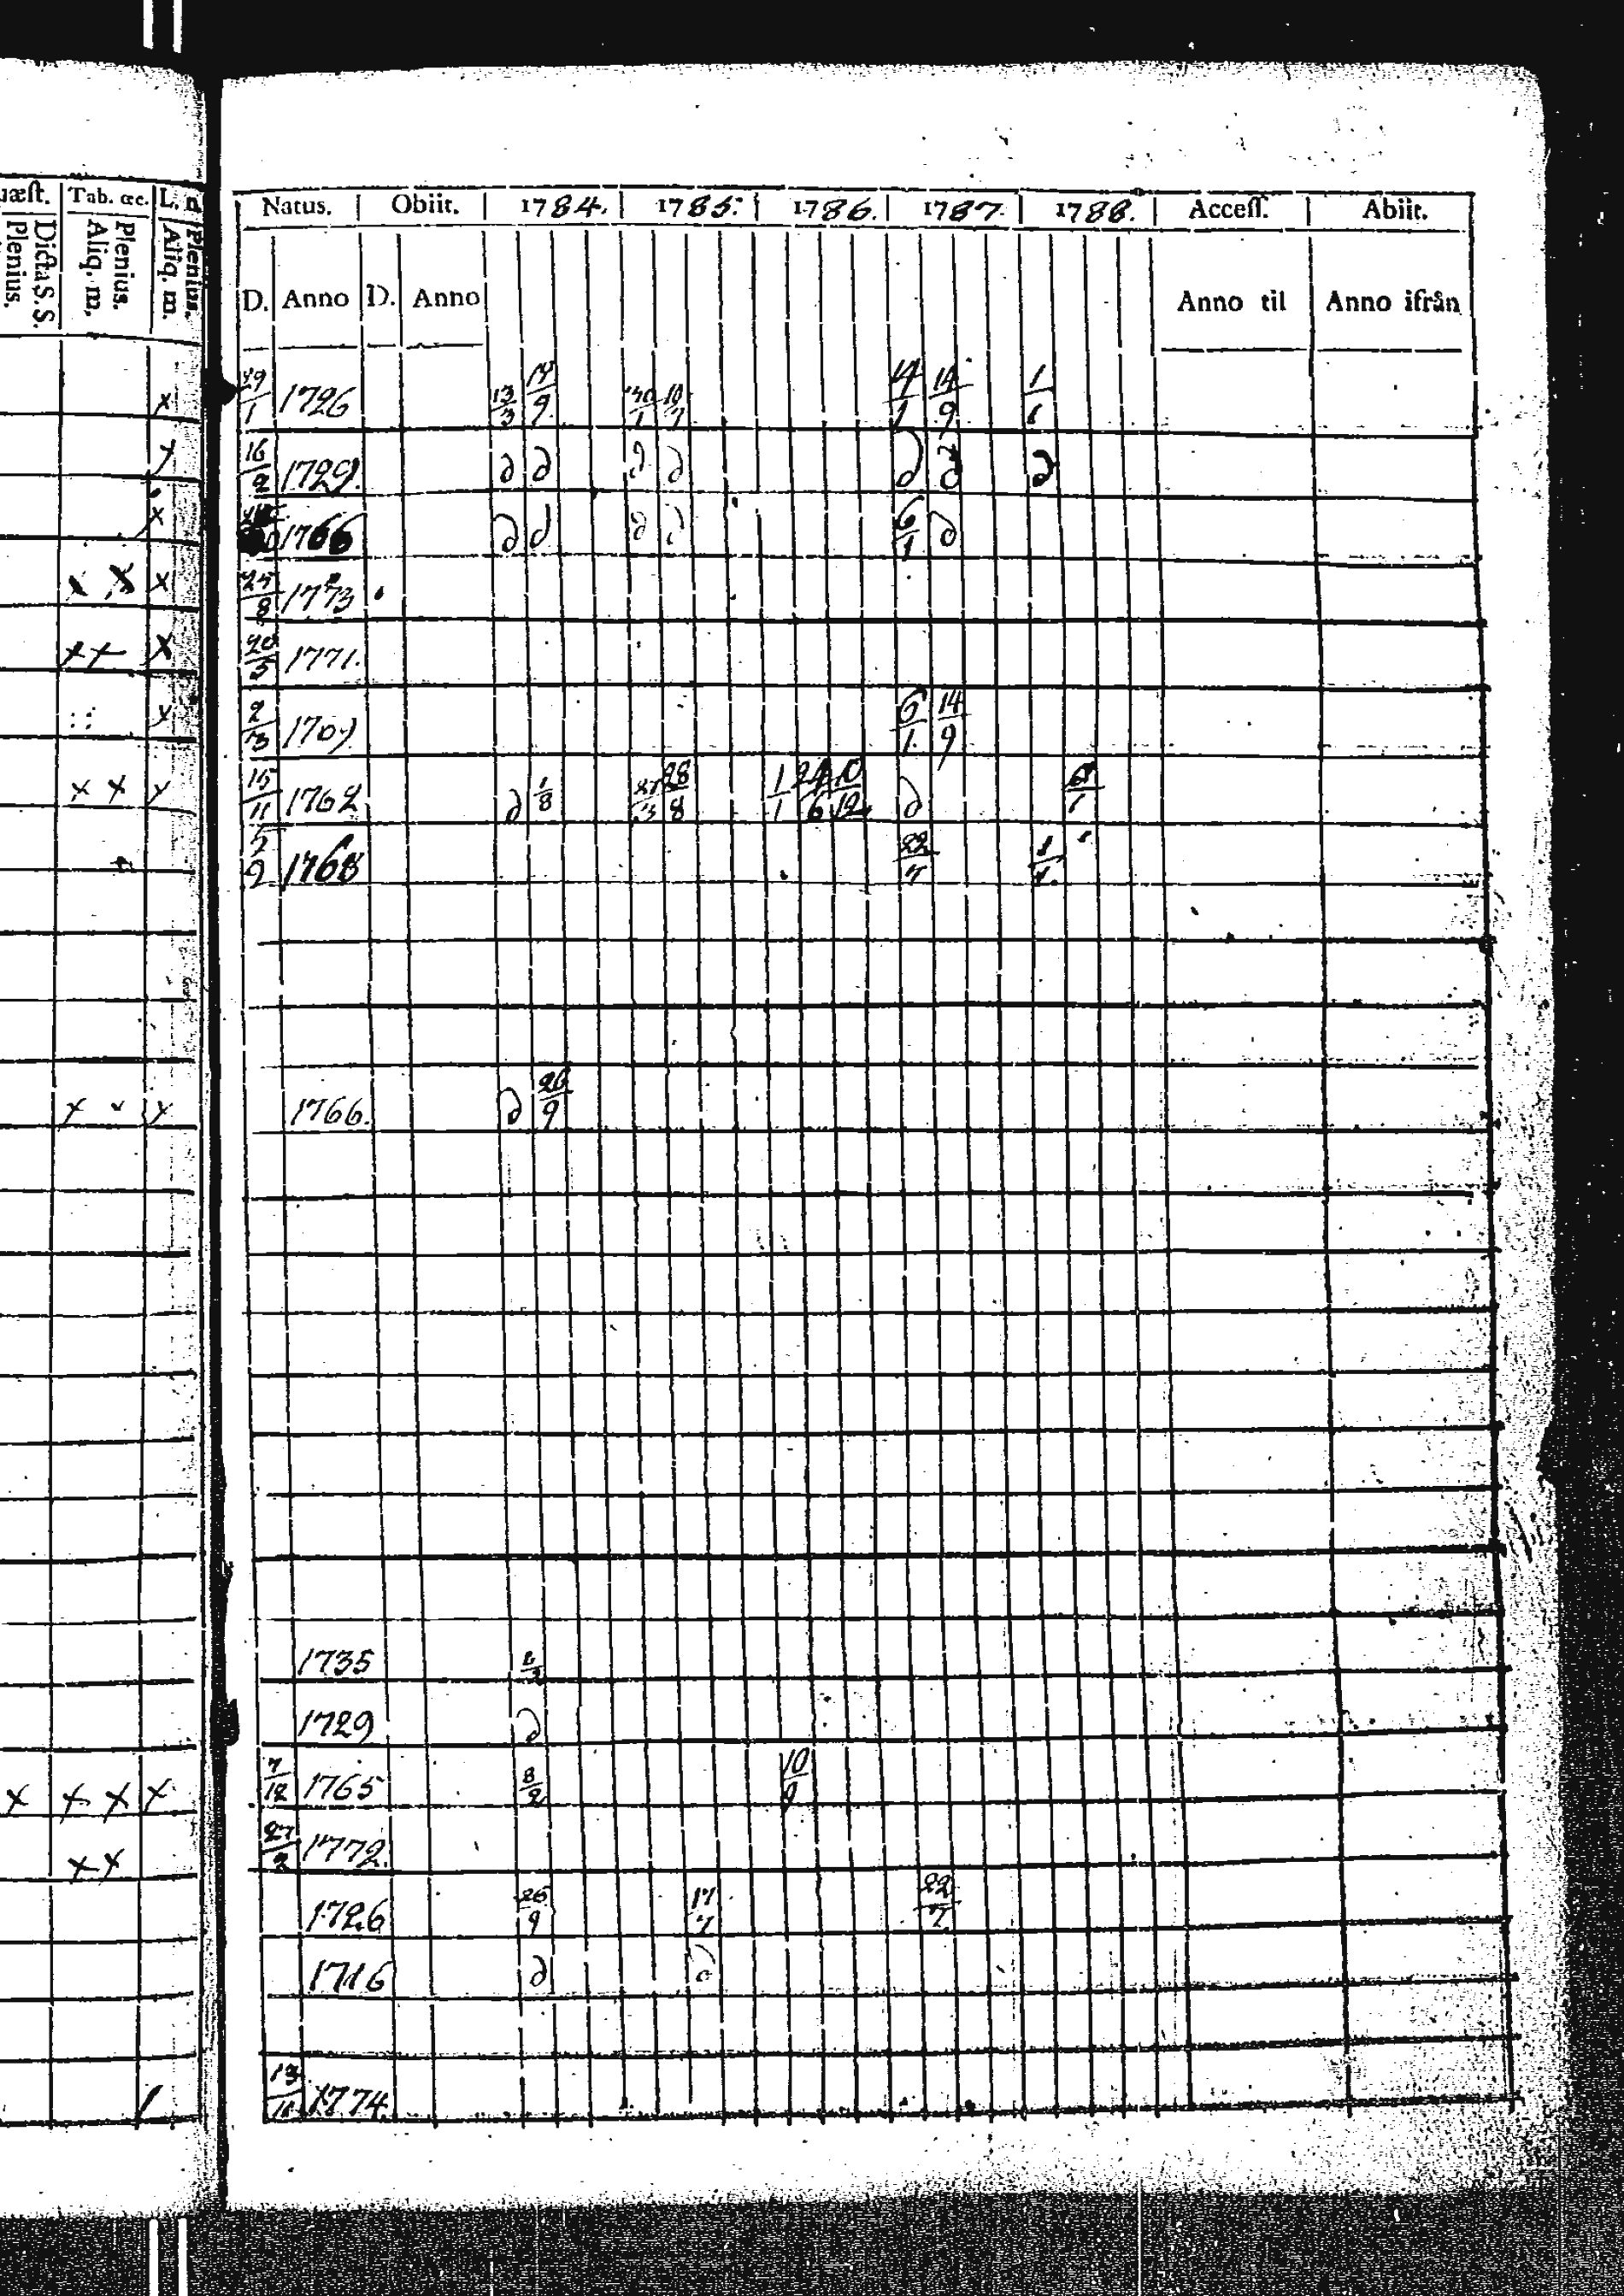 Tab. œc. L. n
Dicta S. S. Plenius. Plenius. Aliq. m. Plenius. Aliq. m.
Natus. Obiit. 1784. 1785. 1786. 1787. 1788. Access. Abiit.
D. Anno D. Anno Anno til Anno ifrån
1726 13/3 14/9 14/9
16/2 1729. ∂ ∂ ∂ ∂ ∂ ∂ ∂
1766 ∂ ∂ ∂ ∂ 6/1 ∂
25/8 1773
20/5 1771.
6/1. 14/9
15/11 1762 ∂ 1/8 28/8 1/1 24/6 10/12 ∂
1768 22/7
1766. ∂ 26/9
1735
1729 ∂
7/12 1765 8/2 10/9
27/2 1772.
1726 26/9 17/7 22/7
1716 ∂ ∂
1774.